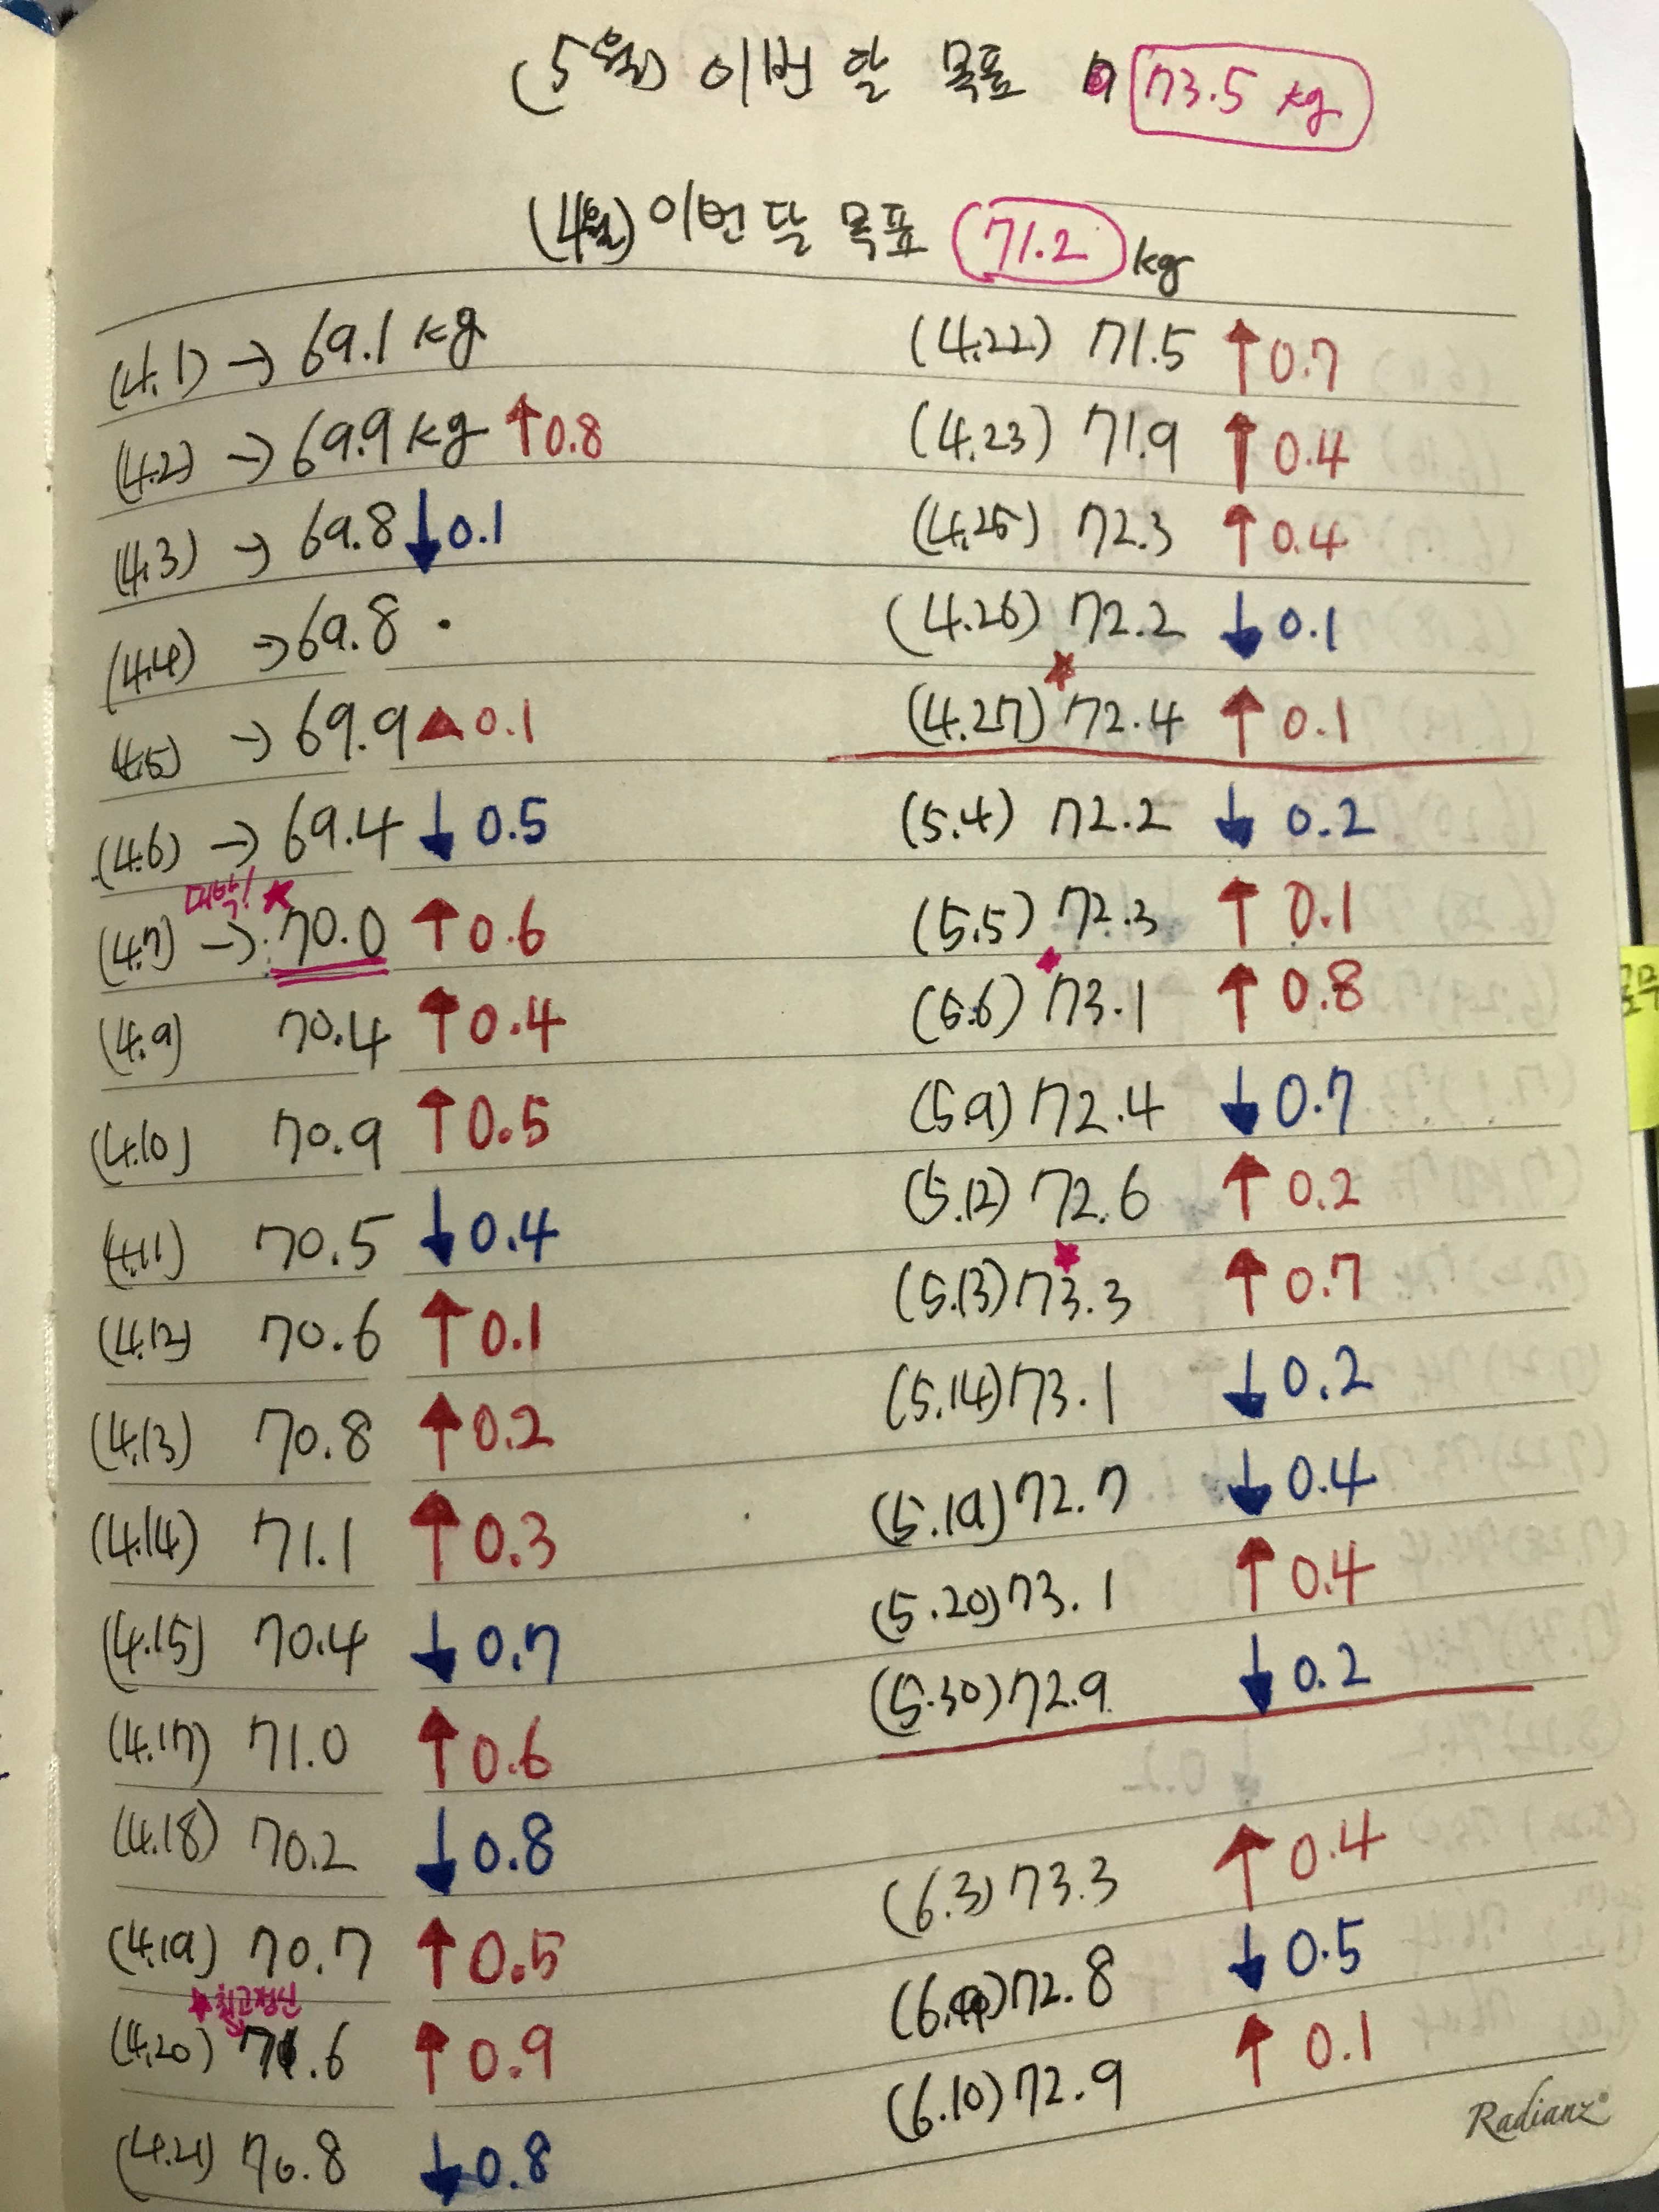 (5월) 이번 달 목표 73.5 kg
(4월) 이번 달 목표 71.2 kg
(4.1) → 69.1 kg
(4.2) → 69.9 kg ↑0.8
(4.3) → 69.8 ↓0.1
(4.4) → 69.8 ·
(4.5) → 69.9 ▲0.1
(4.6) → 69.4 ↓0.5
대박! ★
(4.7) → 70.0 ↑0.6
(4.9) 70.4 ↑0.4
(4.10) 70.9 ↑0.5
(4.11) 70.5 ↓0.4
(4.12) 70.6 ↑0.1
(4.13) 70.8 ↑0.2
(4.14) 71.1 ↑0.3
(4.15) 70.4 ↓0.7
(4.17) 71.0 ↑0.6
(4.18) 70.2 ↓0.8
(4.19) 70.7 ↑0.5
★최고정신
(4.20) 71.6 ↑0.9
(4.21) 70.8 ↓0.8
(4.22) 71.5 ↑0.7
(4.23) 71.9 ↑0.4
(4.25) 72.3 ↑0.4
(4.26) 72.2 ↓0.1
★
(4.27) 72.4 ↑0.1
(5.4) 72.2 ↓0.2
(5.5) 72.3 ↑0.1
★
(5.6) 73.1 ↑0.8
(5.9) 72.4 ↓0.7
(5.12) 72.6 ↑0.2
★
(5.13) 73.3 ↑0.7
(5.14) 73.1 ↓0.2
(5.19) 72.7 ↓0.4
(5.20) 73.1 ↑0.4
(5.30) 72.9 ↓0.2
(6.3) 73.3 ↑0.4
(6.9) 72.8 ↓0.5
(6.10) 72.9 ↑0.1
Radianz